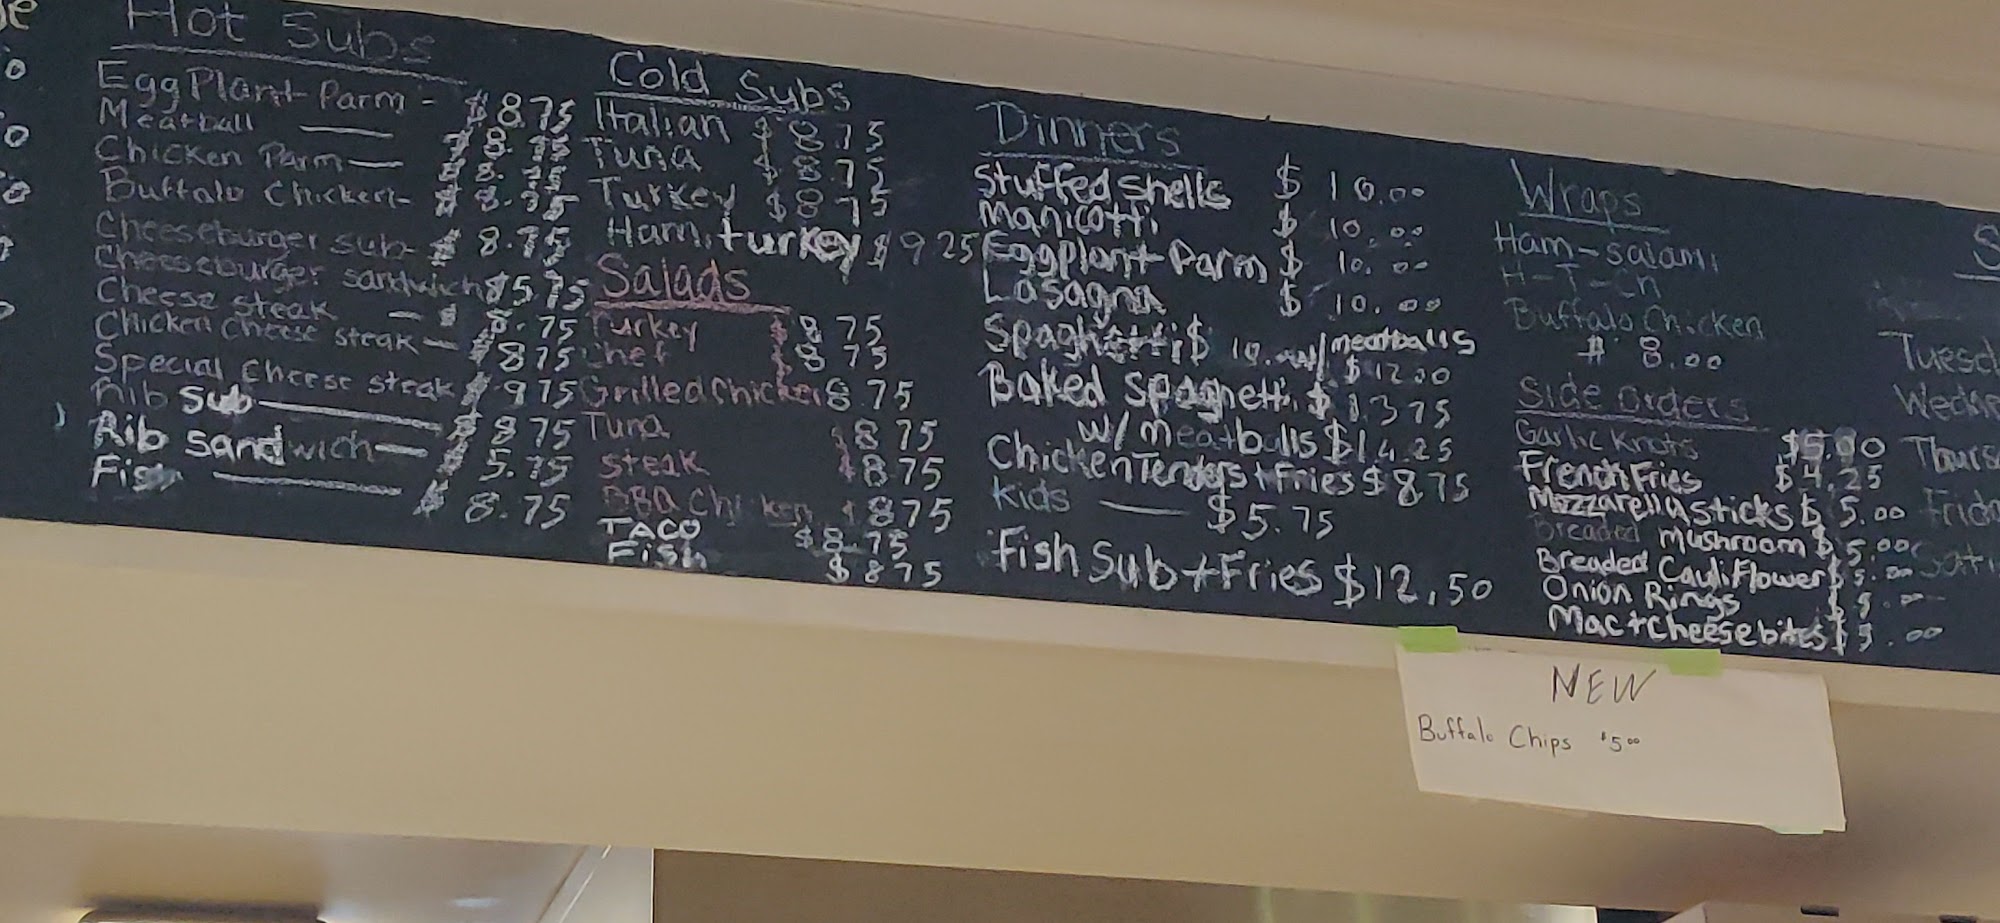 Hot Subs
EggPlant Parm - $8.75
Meatball — $8.75
Chicken Parm — $8.75
Buffalo Chicken - $8.75
Cheeseburger sub - $8.75
Cheeseburger sandwich $5.75
Cheese steak - $8.75
Chicken cheese steak — $875
Special cheese steak $975
Rib Sub — $875
Rib Sandwich — 5.75
Fish — $8.75
Cold Subs
Italian $8.75
Tuna $8.75
Turkey $875
Ham, turkey $9 25
Salads
Turkey $8 75
Chef $8 75
Grilled Chicken 8.75
Tuna $875
steak $875
BBQ Chicken $875
TACO $8.75
Fish $875
Dinners
Stuffed Shells $10.00
Manicotti $10.00
Eggplant Parm $10.00
Lasagna $10.00
Spaghetti $10.00 w/meatballs
$12.00
Baked Spaghetti $13 75
w/meatballs $14.25
Chicken Tenders + Fries $875
Kids — $5.75
Fish Sub + Fries $12,50
Wraps
Ham-salami
H-T-Ch
Buffalo Chicken
$8.00
Side Orders
Garlic Knots $5.00
French Fries $4,25
Mozzarella Sticks $5.00
Breaded mushroom $5.00
Breaded Cauliflower $5.00
Onion Rings $5.00
Mac+Cheese bites $5.00
NEW
Buffalo Chips $5.00